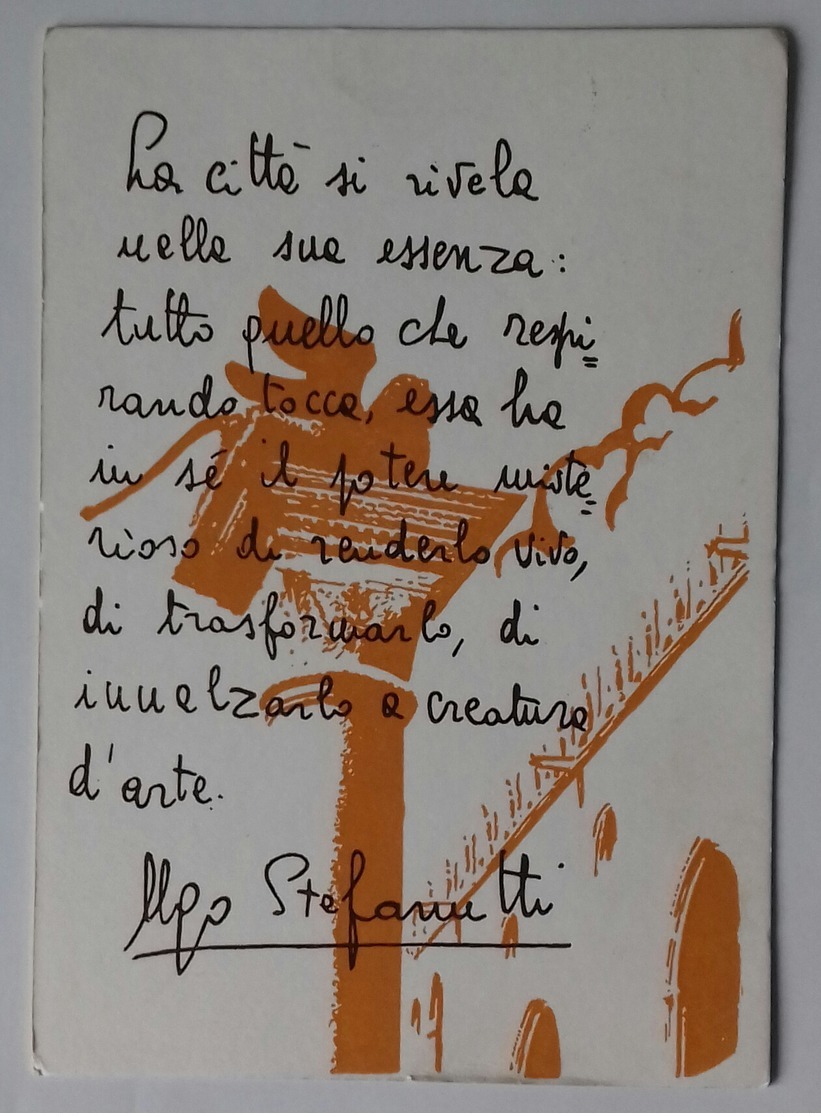 La città si rivela
nella sua essenza:
tutto quello che respi=
rando tocca, essa ha
in sé il potere miste=
rioso di renderlo vivo,
di trasformarlo, di
innalzarlo a creatura
d'arte.
Ugo Stefanutti